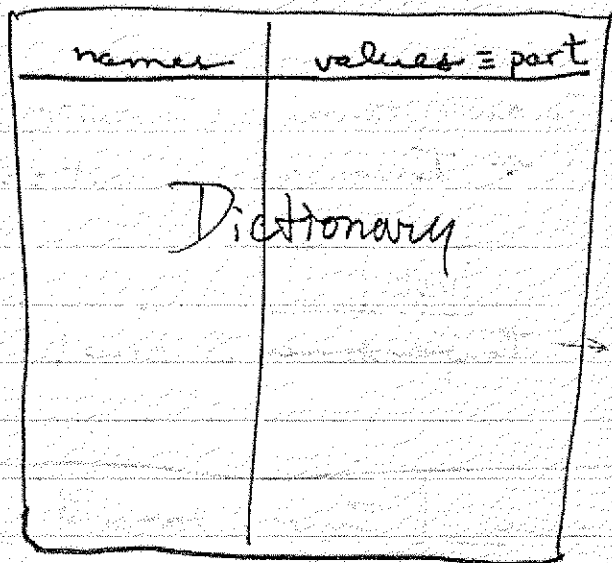 names values ≡ part
Dictionary